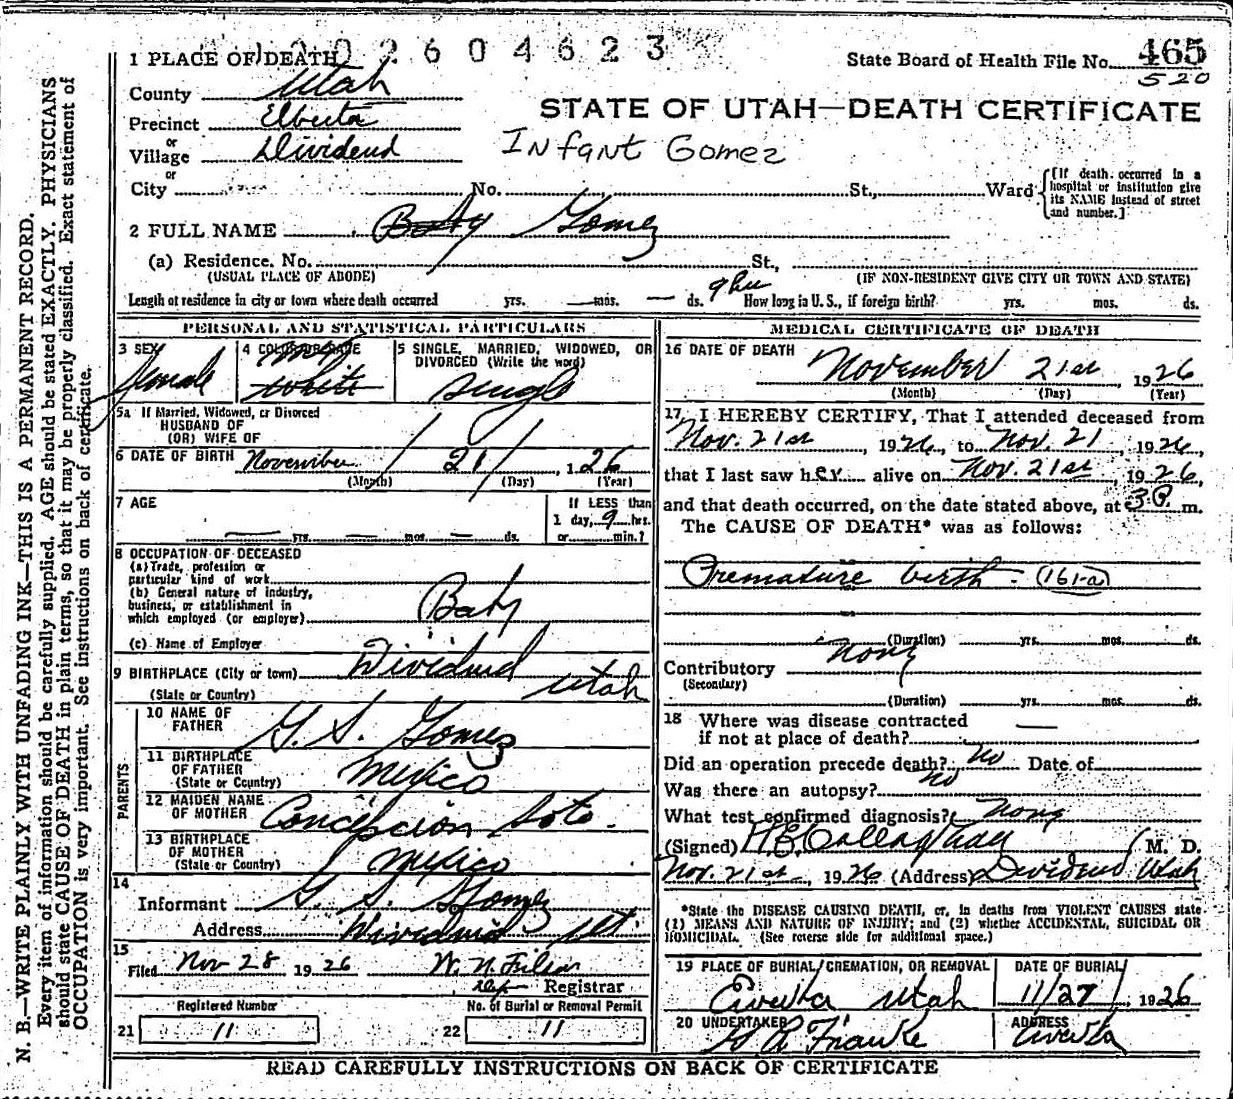 2604623
1 PLACE OF DEATH
State Board of Health File No. 465
520
County Utah
STATE OF UTAH—DEATH CERTIFICATE
Precinct Elberta
or
Village Dividend
Infant Gomez
or
City No. St., Ward
[If death occurred in a hospital or institution give its NAME instead of street and number.]
2 FULL NAME Baby Gomez
(a) Residence, No. St.,
(USUAL PLACE OF ABODE) (IF NON-RESIDENT GIVE CITY OR TOWN AND STATE)
Length of residence in city or town where death occurred yrs. — mos. — ds. 9 hrs How long in U. S., if foreign birth? yrs. mos. ds.
PERSONAL AND STATISTICAL PARTICULARS
3 SEX Female
4 COLOR OR RACE White
5 SINGLE, MARRIED, WIDOWED, OR DIVORCED (Write the word) Single
5a If Married, Widowed, or Divorced
HUSBAND OF
(OR) WIFE OF
6 DATE OF BIRTH November / 21 / , 1 26
(Month) (Day) (Year)
7 AGE — yrs. — mos. — ds.
If LESS than
1 day, 9 hrs.
or min.?
8 OCCUPATION OF DECEASED
(a) Trade, profession or
particular kind of work
(b) General nature of industry,
business, or establishment in
which employed (or employer) Baby
(c) Name of Employer
9 BIRTHPLACE (City or town) Dividend
(State or Country) Utah
PARENTS
10 NAME OF
FATHER G. S. Gomez
11 BIRTHPLACE
OF FATHER Mexico
(State or Country)
12 MAIDEN NAME
OF MOTHER Concepcion Soto.
13 BIRTHPLACE
OF MOTHER Mexico
(State or Country)
14
Informant G. S. Gomez
Address Dividend Ut
15
Filed Nov 28 1926 W. N.
Registrar
Registered Number No. of Burial or Removal Permit
21 11 22 11
MEDICAL CERTIFICATE OF DEATH
16 DATE OF DEATH
November 21st 1926
(Month) (Day) (Year)
17 I HEREBY CERTIFY, That I attended deceased from
Nov. 21st, 1926, to Nov. 21, 1926,
that I last saw her alive on Nov. 21st, 1926,
and that death occurred, on the date stated above, at 3 P. m.
The CAUSE OF DEATH* was as follows:
Premature birth. (161-a)
(Duration) yrs. mos. ds.
Contributory None
(Secondary)
(Duration) yrs. mos. ds.
18 Where was disease contracted
if not at place of death? —
Did an operation precede death? No Date of
Was there an autopsy? No
What test confirmed diagnosis? None
(Signed) H E Callaghan M. D.
Nov. 21st, 1926 (Address) Dividend Utah
*State the DISEASE CAUSING DEATH, or, in deaths from VIOLENT CAUSES state
(1) MEANS AND NATURE OF INJURY; and (2) whether ACCIDENTAL, SUICIDAL OR
HOMICIDAL. (See reverse side for additional space.)
19 PLACE OF BURIAL, CREMATION, OR REMOVAL DATE OF BURIAL
Eureka Utah 11/27, 1926
20 UNDERTAKER ADDRESS
Franke Eureka
READ CAREFULLY INSTRUCTIONS ON BACK OF CERTIFICATE
N. B.—WRITE PLAINLY WITH UNFADING INK—THIS IS A PERMANENT RECORD.
Every item of information should be carefully supplied. AGE should be stated EXACTLY. PHYSICIANS
should state CAUSE OF DEATH in plain terms, so that it may be properly classified. Exact statement of
OCCUPATION is very important. See instructions on back of certificate.